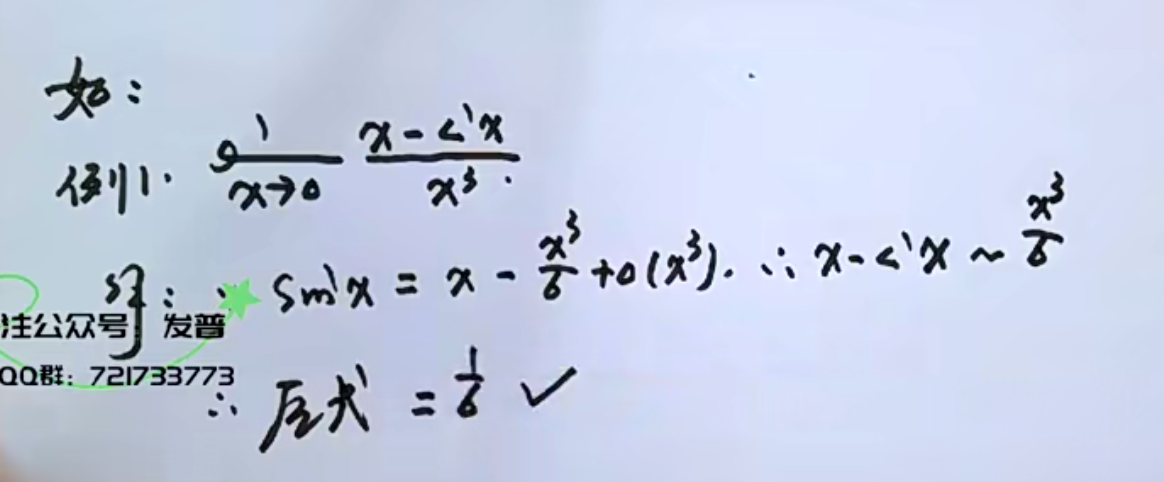 如:
例1. lim x→0 (x - sin x)/x³.
解: ∵ sin x = x - x³/6 + o(x³). ∴ x - sin x ~ x³/6
注公众号: 发普
QQ群: 721733773
∴ 原式 = 1/6 ✓